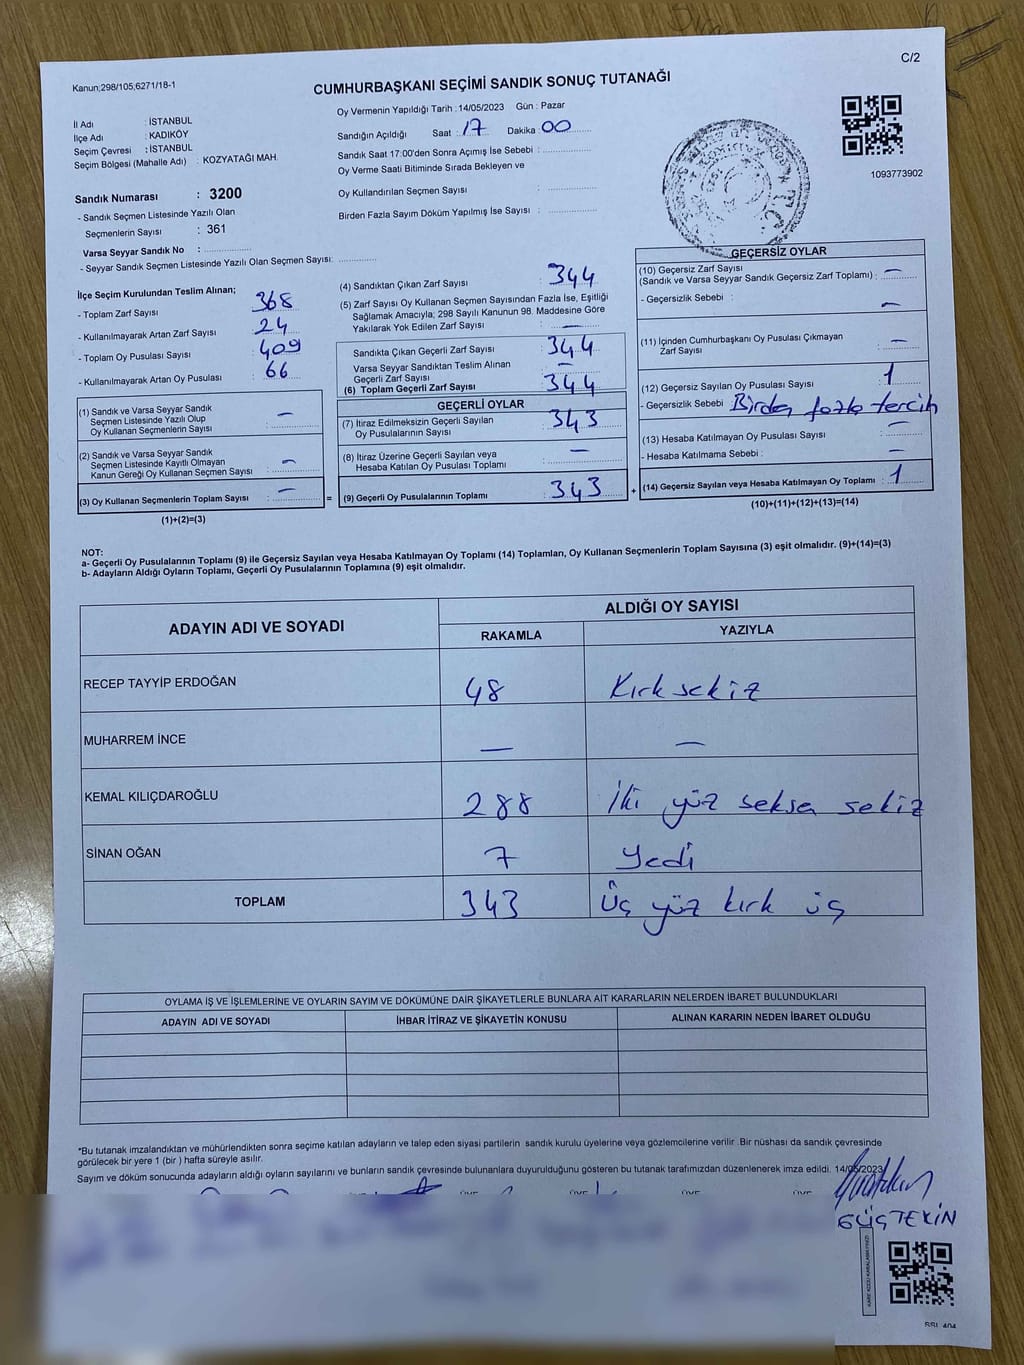 C/2
Kanun;298/105,6271/18-1
CUMHURBAŞKANI SEÇİMİ SANDIK SONUÇ TUTANAĞI
İl Adı : İSTANBUL
İlçe Adı : KADIKÖY
Seçim Çevresi : İSTANBUL
Seçim Bölgesi (Mahalle Adı) : KOZYATAĞI MAH.
Sandık Numarası : 3200
- Sandık Seçmen Listesinde Yazılı Olan
Seçmenlerin Sayısı : 361
Varsa Seyyar Sandık No :
- Seyyar Sandık Seçmen Listesinde Yazılı Olan Seçmen Sayısı:
Oy Vermenin Yapıldığı Tarih : 14/05/2023 Gün : Pazar
Sandığın Açıldığı Saat : 17 Dakika 00
Sandık Saat 17:00'den Sonra Açımış İse Sebebi :
Oy Verme Saati Bitiminde Sırada Bekleyen ve
Oy Kullandırılan Seçmen Sayısı :
Birden Fazla Sayım Döküm Yapılmış İse Sayısı :
1093773902
İlçe Seçim Kurulundan Teslim Alınan;
- Toplam Zarf Sayısı 368
- Kullanılmayarak Artan Zarf Sayısı 24
- Toplam Oy Pusulası Sayısı 409
- Kullanılmayarak Artan Oy Pusulası : 66
(1) Sandık ve Varsa Seyyar Sandık
Seçmen Listesinde Yazılı Olup
Oy Kullanan Seçmenlerin Sayısı : —
(2) Sandık ve Varsa Seyyar Sandık
Seçmen Listesinde Kayıtlı Olmayan
Kanun Gereği Oy Kullanan Seçmen Sayısı : —
(3) Oy Kullanan Seçmenlerin Toplam Sayısı : —
(1)+(2)=(3)
(4) Sandıktan Çıkan Zarf Sayısı : 344
(5) Zarf Sayısı Oy Kullanan Seçmen Sayısından Fazla İse, Eşitliği
Sağlamak Amacıyla; 298 Sayılı Kanunun 98. Maddesine Göre
Yakılarak Yok Edilen Zarf Sayısı : —
Sandıkta Çıkan Geçerli Zarf Sayısı : 344
Varsa Seyyar Sandıktan Teslim Alınan
Geçerli Zarf Sayısı : —
(6) Toplam Geçerli Zarf Sayısı : 344
GEÇERLİ OYLAR
(7) İtiraz Edilmeksizin Geçerli Sayılan
Oy Pusulalarının Sayısı : 343
(8) İtiraz Üzerine Geçerli Sayılan veya
Hesaba Katılan Oy Pusulası Toplamı : —
= (9) Geçerli Oy Pusulalarının Toplamı : 343 +
GEÇERSİZ OYLAR
(10) Geçersiz Zarf Sayısı
(Sandık ve Varsa Seyyar Sandık Geçersiz Zarf Toplamı) : —
- Geçersizlik Sebebi : —
(11) İçinden Cumhurbaşkanı Oy Pusulası Çıkmayan
Zarf Sayısı : —
(12) Geçersiz Sayılan Oy Pusulası Sayısı : 1
- Geçersizlik Sebebi : Birden fazla tercih
(13) Hesaba Katılmayan Oy Pusulası Sayısı : —
- Hesaba Katılmama Sebebi : —
(14) Geçersiz Sayılan veya Hesaba Katılmayan Oy Toplamı : 1
(10)+(11)+(12)+(13)=(14)
NOT:
a- Geçerli Oy Pusulalarının Toplamı (9) ile Geçersiz Sayılan veya Hesaba Katılmayan Oy Toplamı (14) Toplamları, Oy Kullanan Seçmenlerin Toplam Sayısına (3) eşit olmalıdır. (9)+(14)=(3)
b- Adayların Aldığı Oyların Toplamı, Geçerli Oy Pusulalarının Toplamına (9) eşit olmalıdır.
ADAYIN ADI VE SOYADI ALDIĞI OY SAYISI
RAKAMLA YAZIYLA
RECEP TAYYİP ERDOĞAN 48 Kırk sekiz
MUHARREM İNCE — —
KEMAL KILIÇDAROĞLU 288 İki yüz seksen sekiz
SİNAN OĞAN 7 Yedi
TOPLAM 343 Üç yüz kırk üç
OYLAMA İŞ VE İŞLEMLERİNE VE OYLARIN SAYIM VE DÖKÜMÜNE DAİR ŞİKAYETLERLE BUNLARA AİT KARARLARIN NELERDEN İBARET BULUNDUKLARI
ADAYIN ADI VE SOYADI İHBAR İTİRAZ VE ŞİKAYETİN KONUSU ALINAN KARARIN NEDEN İBARET OLDUĞU
*Bu tutanak imzalandıktan ve mühürlendikten sonra seçime katılan adayların ve talep eden siyasi partilerin sandık kurulu üyelerine veya gözlemcilerine verilir .Bir nüshası da sandık çevresinde
görülecek bir yere 1 (bir ) hafta süreyle asılır.
Sayım ve döküm sonucunda adayların aldığı oyların sayılarını ve bunların sandık çevresinde bulunanlara duyurulduğunu gösteren bu tutanak tarafımızdan düzenlenerek imza edildi. 14/05/2023
GÜÇTEKİN